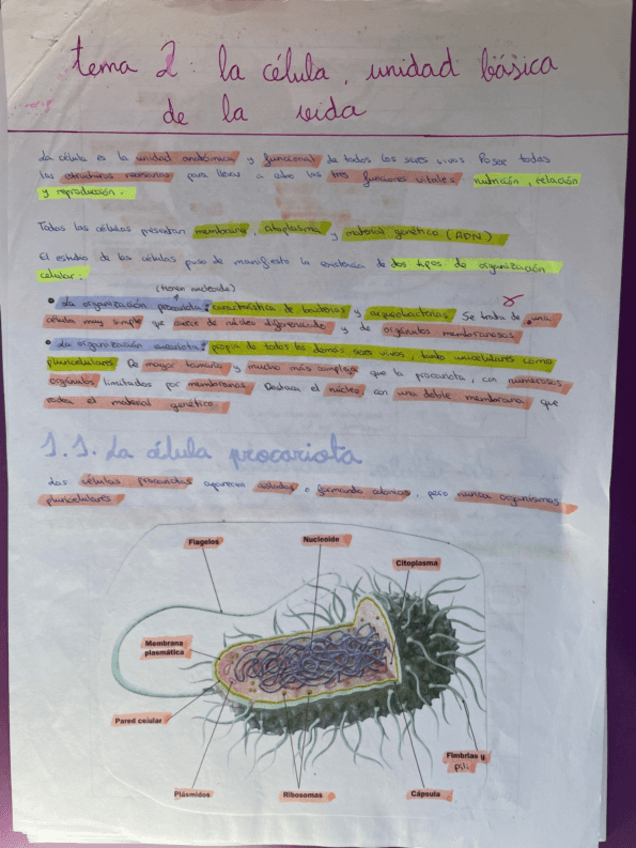 tema 2: la célula, unidad básica
de la vida
La célula es la unidad anatómica y funcional de todos los seres vivos. Posee todas
las estructuras necesarias para llevar a cabo las tres funciones vitales, nutrición, relación
y reproducción.
Todas las células presentan membrana, citoplasma y material genético (ADN)
El estudio de las células puso de manifiesto la existencia de dos tipos de organización
celular.
(tienen nucleoide)
• La organización procariota: característica de bacterias y arqueobacterias. Se trata de una
célula muy simple que carece de núcleo diferenciado y de orgánulos membranosos.
• La organización eucariota: propia de todos los demás seres vivos, tanto unicelulares como
pluricelulares. De mayor tamaño y mucho más compleja que la procariota, con numerosos
orgánulos limitados por membranas. Destaca el núcleo, con una doble membrana que
rodea el material genético.
1.1. La célula procariota
Las células procariotas aparecen aisladas o formando colonias, pero nunca organismos
pluricelulares
Flagelos
Nucleoide
Citoplasma
Membrana
plasmática
Pared celular
Fimbrias y
pili.
Plásmidos
Ribosomas
Cápsula